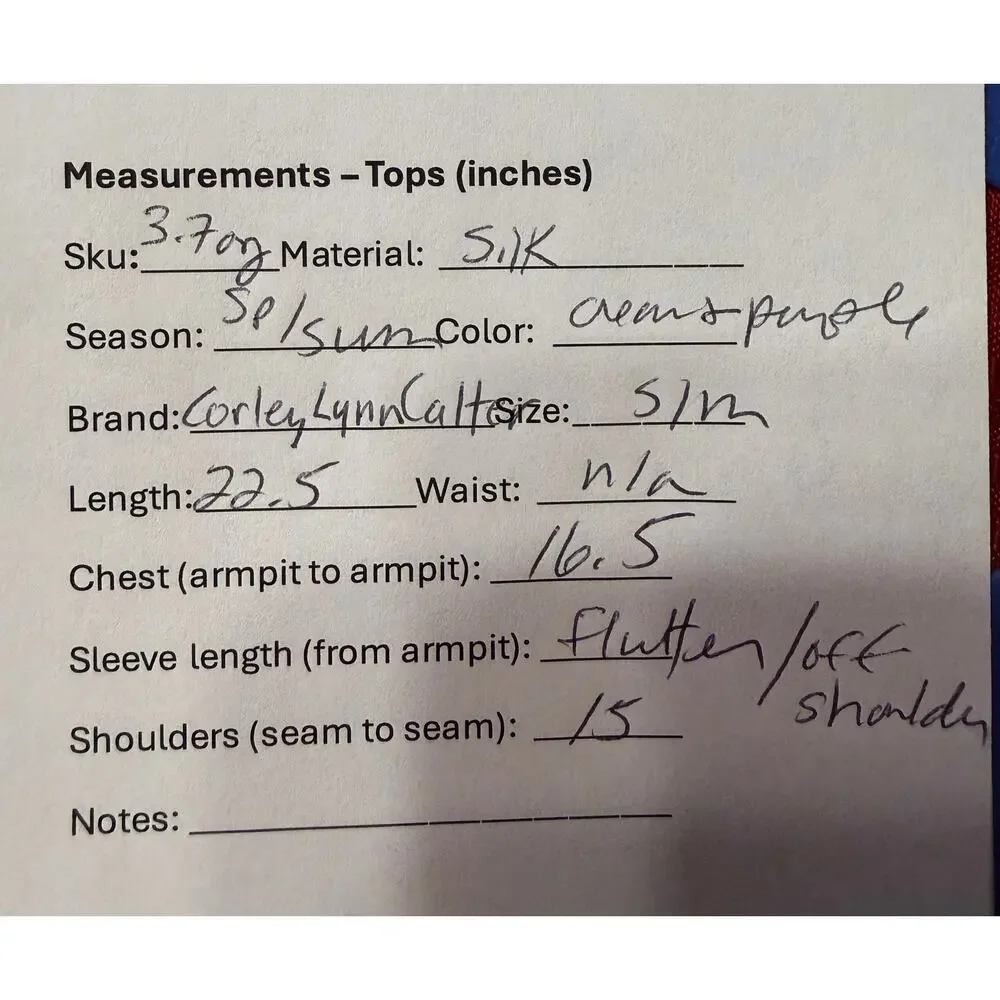 Measurements – Tops (inches)
Sku: 3.7oz Material: Silk
Season: Sp/sum Color: cream + purple
Brand: Corley Lynn Calter Size: s/m
Length: 22.5 Waist: n/a
Chest (armpit to armpit): 16.5
Sleeve length (from armpit): flutter/off
shoulder
Shoulders (seam to seam): 15
Notes: